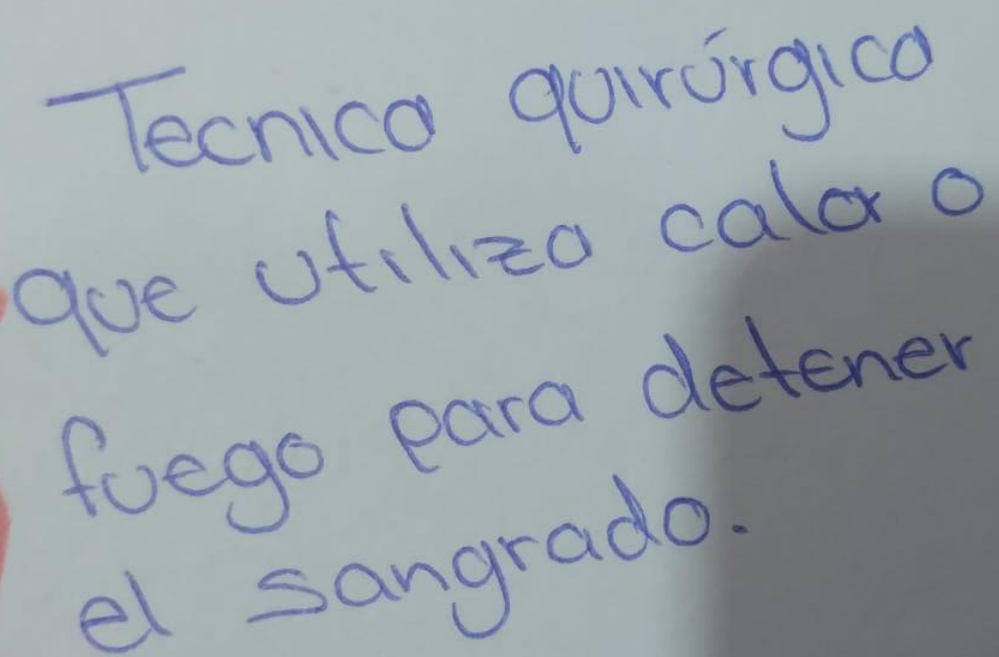 Tecnica quirúrgica
que utiliza calor o
fuego para detener
el sangrado.